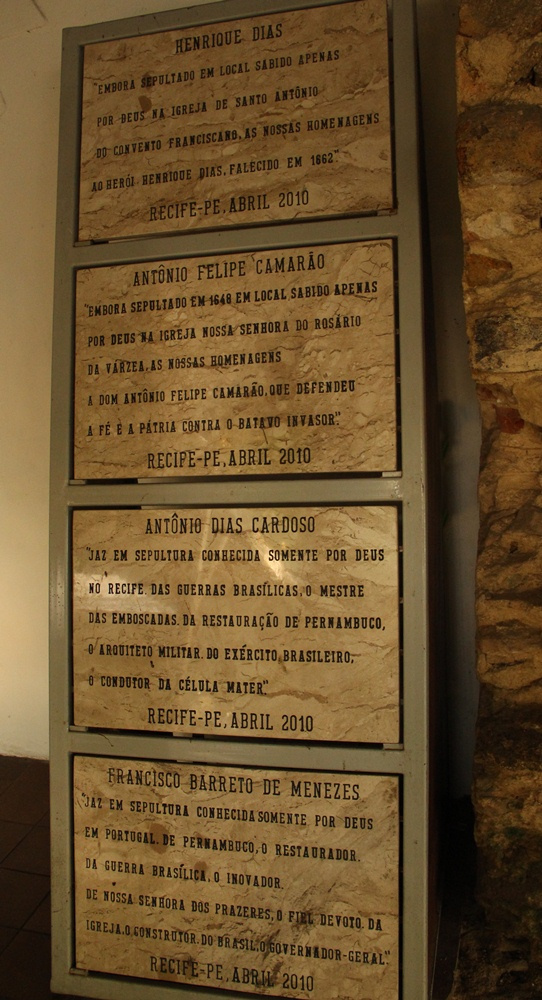 HENRIQUE DIAS
"EMBORA SEPULTADO EM LOCAL SABIDO APENAS
POR DEUS NA IGREJA DE SANTO ANTÔNIO
DO CONVENTO FRANCISCANO, AS NOSSAS HOMENAGENS
AO HERÓI HENRIQUE DIAS, FALECIDO EM 1662"
RECIFE-PE, ABRIL 2010
ANTÔNIO FELIPE CAMARÃO
"EMBORA SEPULTADO EM 1648 EM LOCAL SABIDO APENAS
POR DEUS NA IGREJA NOSSA SENHORA DO ROSÁRIO
DA VÁRZEA, AS NOSSAS HOMENAGENS
A DOM ANTÔNIO FELIPE CAMARÃO, QUE DEFENDEU
A FÉ E A PÁTRIA CONTRA O BATAVO INVASOR".
RECIFE-PE, ABRIL 2010
ANTÔNIO DIAS CARDOSO
"JAZ EM SEPULTURA CONHECIDA SOMENTE POR DEUS
NO RECIFE. DAS GUERRAS BRASÍLICAS, O MESTRE
DAS EMBOSCADAS. DA RESTAURAÇÃO DE PERNAMBUCO,
O ARQUITETO MILITAR. DO EXÉRCITO BRASILEIRO,
O CONDUTOR DA CÉLULA MATER".
RECIFE-PE, ABRIL 2010
FRANCISCO BARRETO DE MENEZES
"JAZ EM SEPULTURA CONHECIDA SOMENTE POR DEUS
EM PORTUGAL. DE PERNAMBUCO, O RESTAURADOR.
DA GUERRA BRASÍLICA, O INOVADOR.
DE NOSSA SENHORA DOS PRAZERES, O FIEL DEVOTO. DA
IGREJA, O CONSTRUTOR. DO BRASIL, O GOVERNADOR-GERAL".
RECIFE-PE, ABRIL 2010